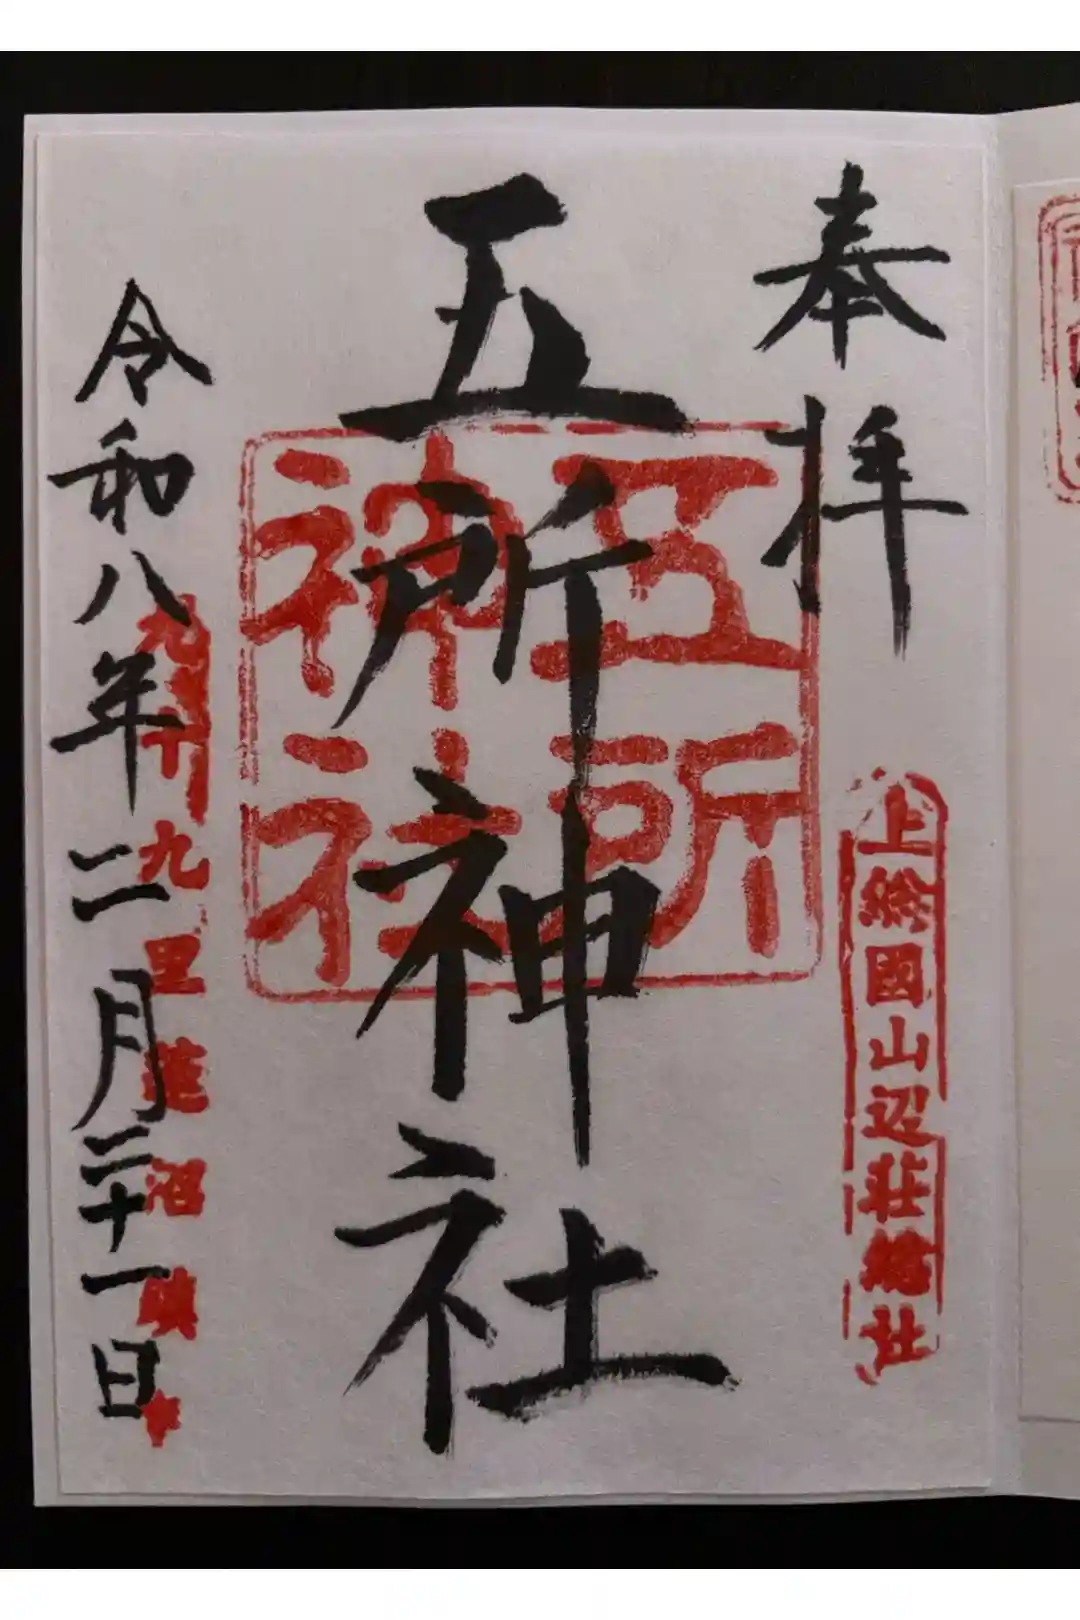 奉拝
上総國山辺荘総社
五所神社
五所神社
令和八年二月二十一日
九十九里蓮沼鎮守